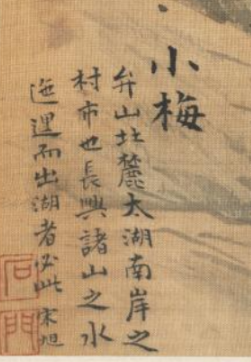 小梅
弁山北麓太湖南岸之
村市也長興諸山之水
迤邐而出湖者必此 宋旭
石門